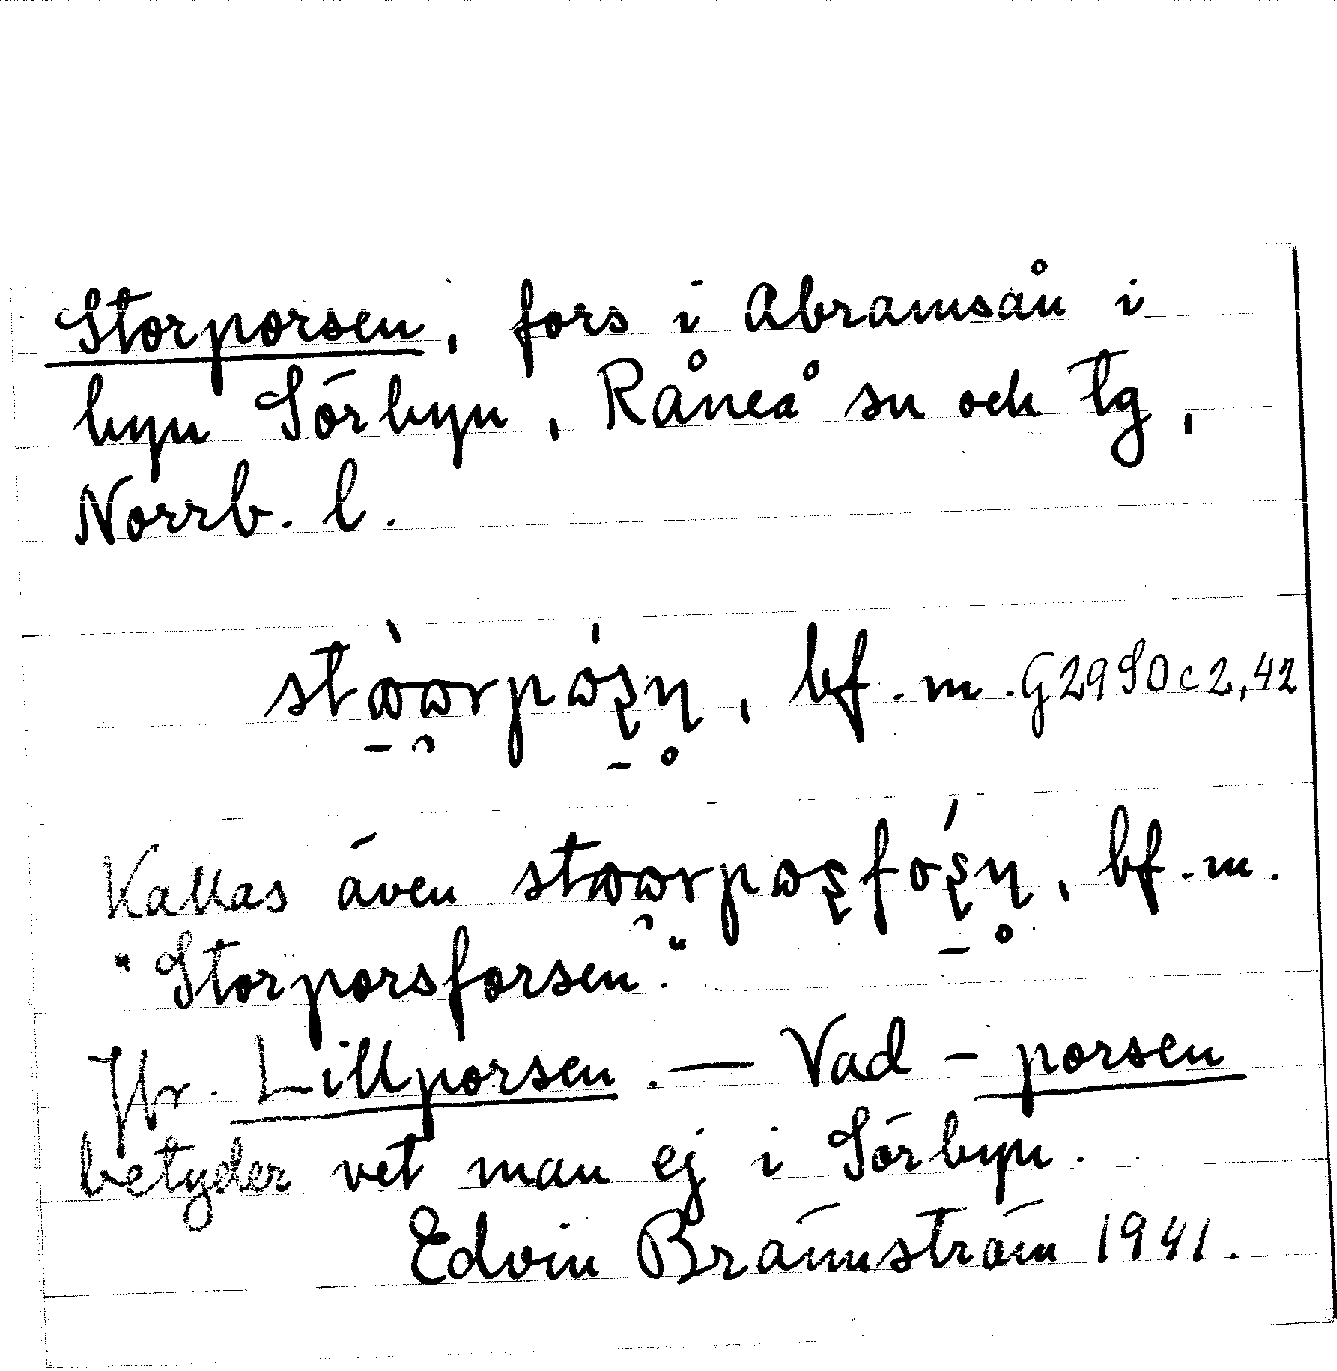 Storporsen, fors i Abramsån i
byn Sörbyn, Råneå sn och tg,
Norrb. l.
bf. m. G2990c2,42
Kallas även bf. m.
"Storporsforsen."
Jfr. Lillporsen. — Vad -porsen
betyder vet man ej i Sörbyn.
Edvin Brännström 1941.